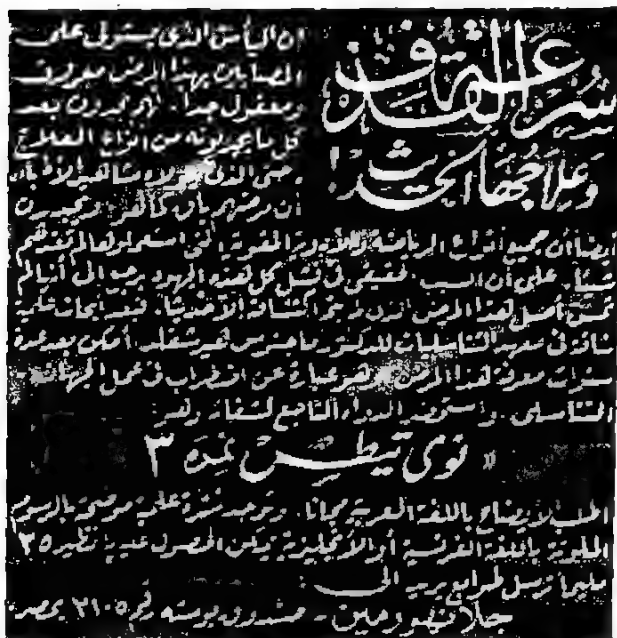 سر علة القذف
وعلاجها الحديث!
ان اليأس الذى يستولى على
المصابين بهذا المرض معروف
ومعقول جدا. فهم يجدون بعد
كل ما يجربونه من انواع العلاج
وحتى الذى
أن مرضهم باق كما هو
أيضا أن جميع أنواع الرياضة والأدوية المقوية التى استعملوها لم تفدهم
شيئا. على أن السبب الحقيقى فى فشل كل هذه الجهود يرجع الى أنها لم
تمس أصل هذا المرض الذى لم يتم اكتشافه الا حديثا. فبعد أبحاث علمية
شاقة فى معهد التناسليات للدكتور ماجنوس هيرشفلد أمكن بعد عدة
سنوات معرفة هذا المرض وهو عبارة عن اضطراب فى عمل الجهاز
التناسلى. واستحضر الدواء الناجع لشفائه وهو:
« نوى تيطس نمره ٣
اطلب الايضاح باللغة العربية مجانا. وتوجد نشرة علمية موضحة بالرسوم
الملونة باللغة الفرنسية أو الأنجليزية يمكن الحصول عليها نظير ٣٥
مليما ترسل طوابع بريد الى:
جلانتهورمين - صندوق بوسته رقم ٢١٠٥ بمصر